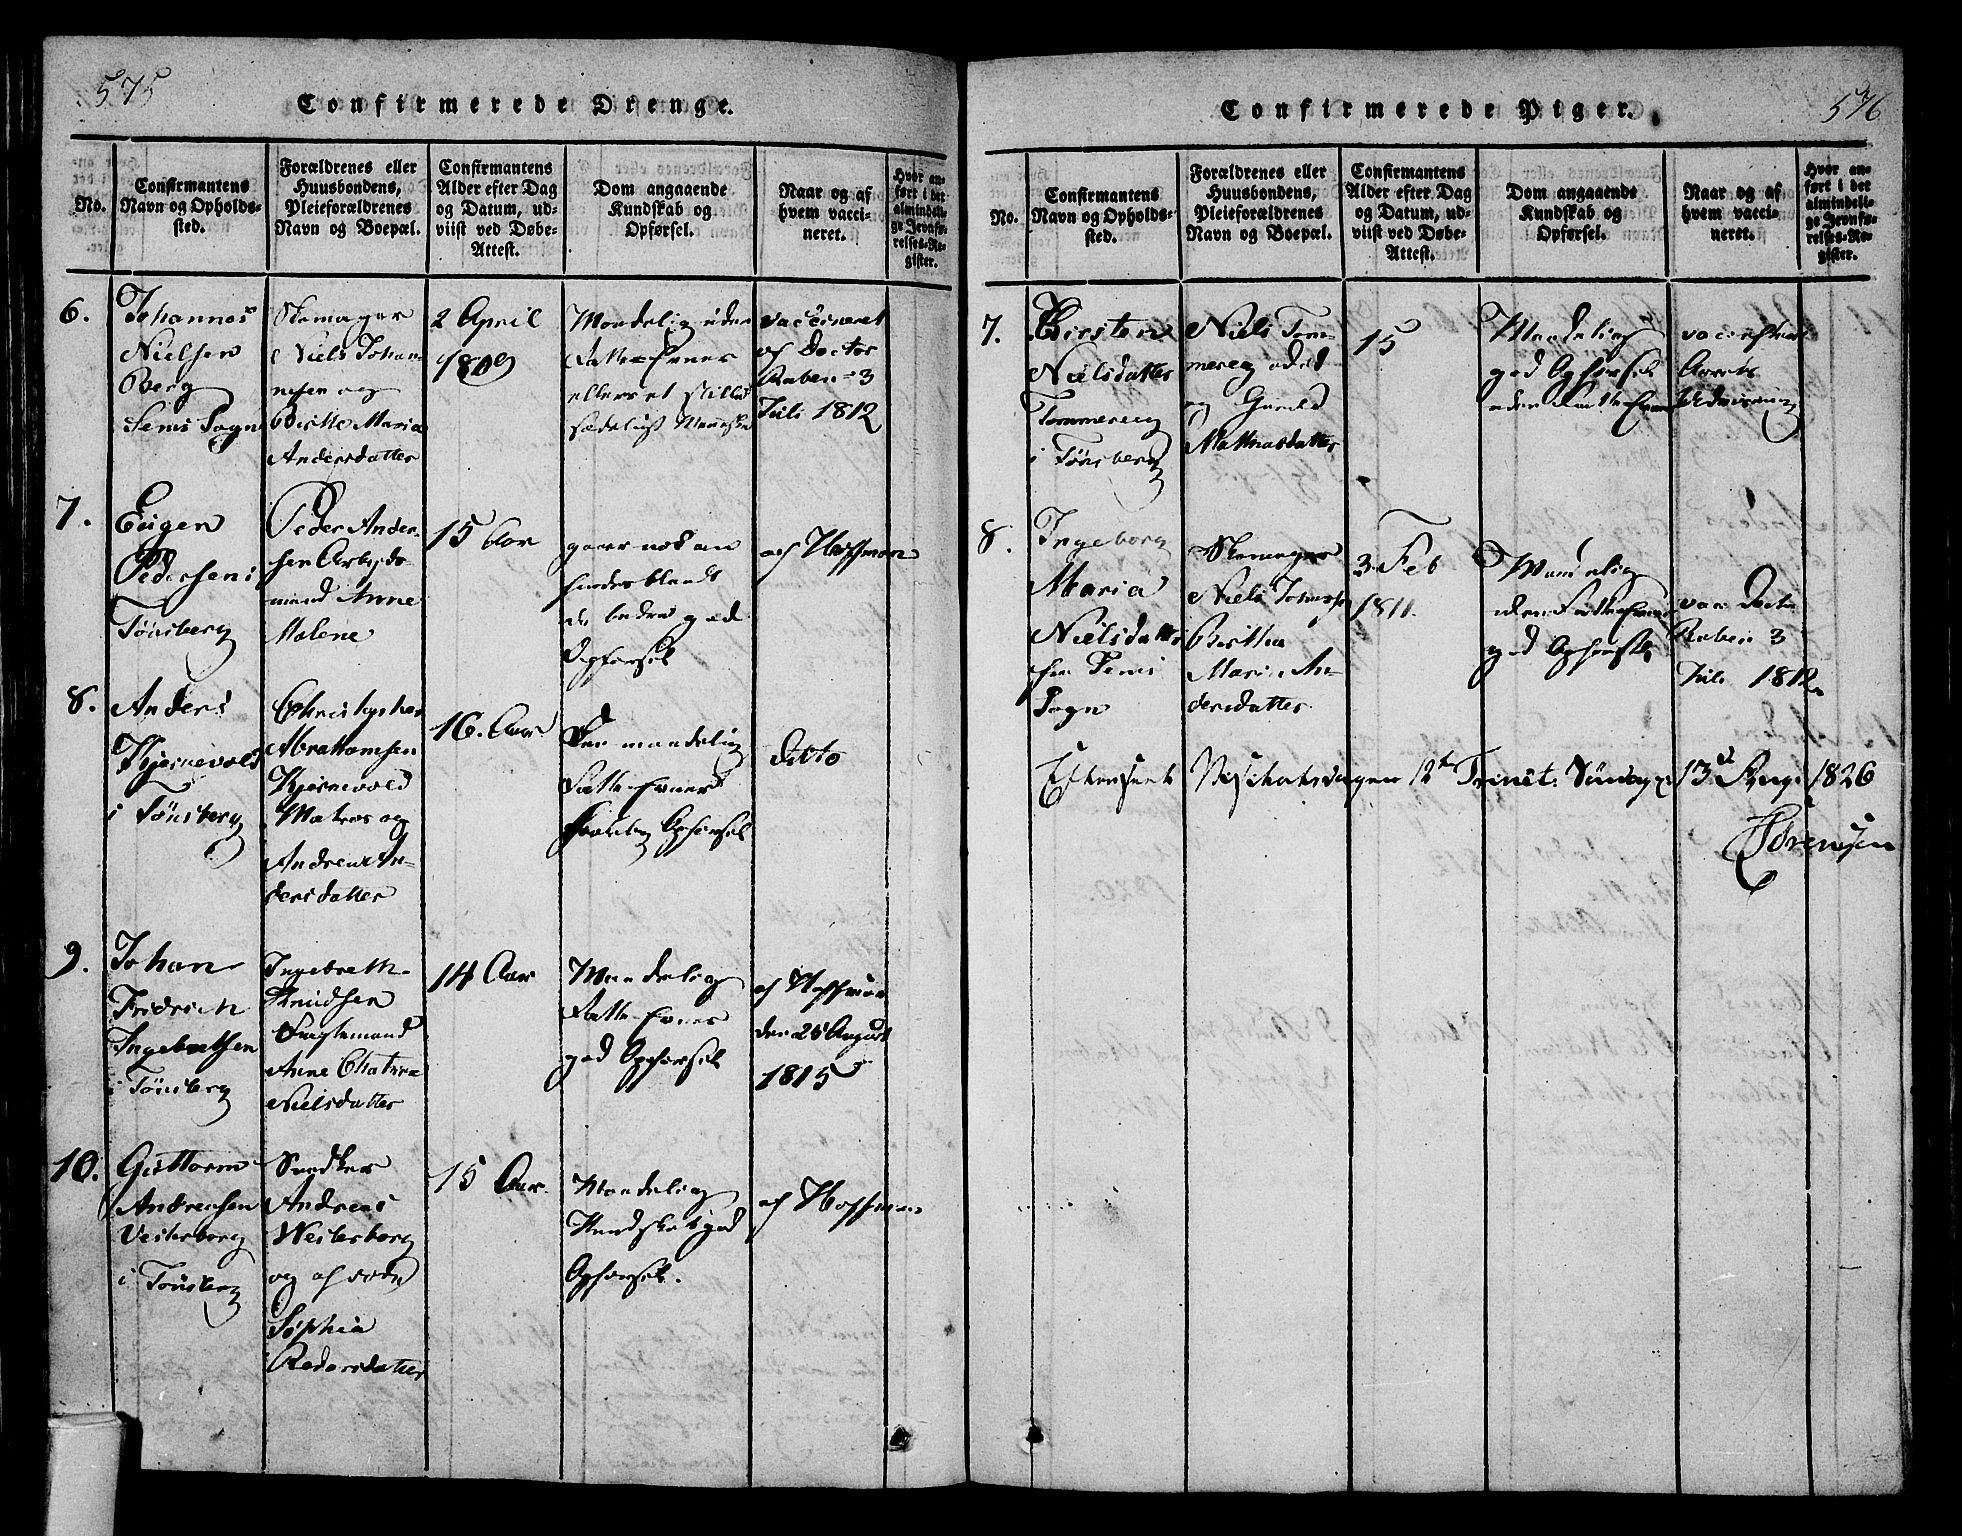 575
Confirmerede Drenge.
No.
Confirmantens
Navn og Opholds-
sted.
Forældrenes eller
Huusbondens,
Pleieforældrenes
Navn og Boepæl.
Confirmantens
Alder efter Dag
og Datum, ud-
viist ved Døbe-
Attest.
Dom angaaende
Kundskab og
Opførsel.
Naar og af
hvem vacci-
neret.
Hvor an-
ført i det
almindeli-
ge Jevnfø-
relses-Re-
gister.
6.
Johannes
Nielsen
Berg
Sems Sogn
Skomager
Niels Johan-
nesen og
Birthe Maria
Andersdatter
2 April
1809
Maadelig uden
Fatte-Evner
ellers et stille
sædeligt Menneske
vaccineret
af Doctor
Raben 3
Juli 1812
7.
Eeigen
Pedersen
Tønsberg
Peder Ander-
sen Arbejds-
mand Anne
Malene
15 Aar
god
Opførsel
af Hoffman
8.
Anders
Kjernevold
i Tønsberg
Christopher
Abrahamsen
Kjernevold
Matros og
Andrea An-
dersdatter
16. Aar
maadelig
Fatte Evner
Opførsel
ditto
9.
Johan
Fridrich
Ingebretsen
i Tønsberg
Ingebreth
Knudsen
Anne Chatrine
Nielsdatter
14 Aar
Maadelig
Fatte-Evner
god Opførsel
af Hoffman
den 25 August
1815
10.
Guttorm
Andreasen
Vesterborg
i Tønsberg
Snedker
Andreas
Westerborg
og af
Sophia
Pedersdatter
15 Aar.
Maadelig
Kundskab god
Opførsel.
af Hoffman
576
Confirmerede Piger.
No.
Confirmantens
Navn og Opholds-
sted.
Forældrenes eller
Huusbondens,
Pleieforældrenes
Navn og Boepæl.
Confirmantens
Alder efter Dag
og Datum, ud-
viist ved Døbe-
Attest.
Dom angaaende
Kundskab og
Opførsel.
Naar og af
hvem vacci-
neret.
Hvor an-
ført i det
almindeli-
ge Jevnfø-
relses-Re-
gister.
7.
Kirsten
Nielsdatter
Tommereeg
i Tønsberg
Niels Tom-
mereeg
og Gunild
Mathiasdatter
15
Maadelig
god Opførsel
uden Fatte Evner
8.
Ingeborg
Maria
Nielsdatter
fra Sems
Sogn
Skomager
Niels
Birthe
Maria An-
dersdatter
3 Feb
1811.
Maadelig
uden Fatte Evner
god Opførsel
vac: Doctor
Raben 3
Juli 1812
Visitatsdagen 12te Trinit: Søndag 13d Aug. 1826
Sørensen